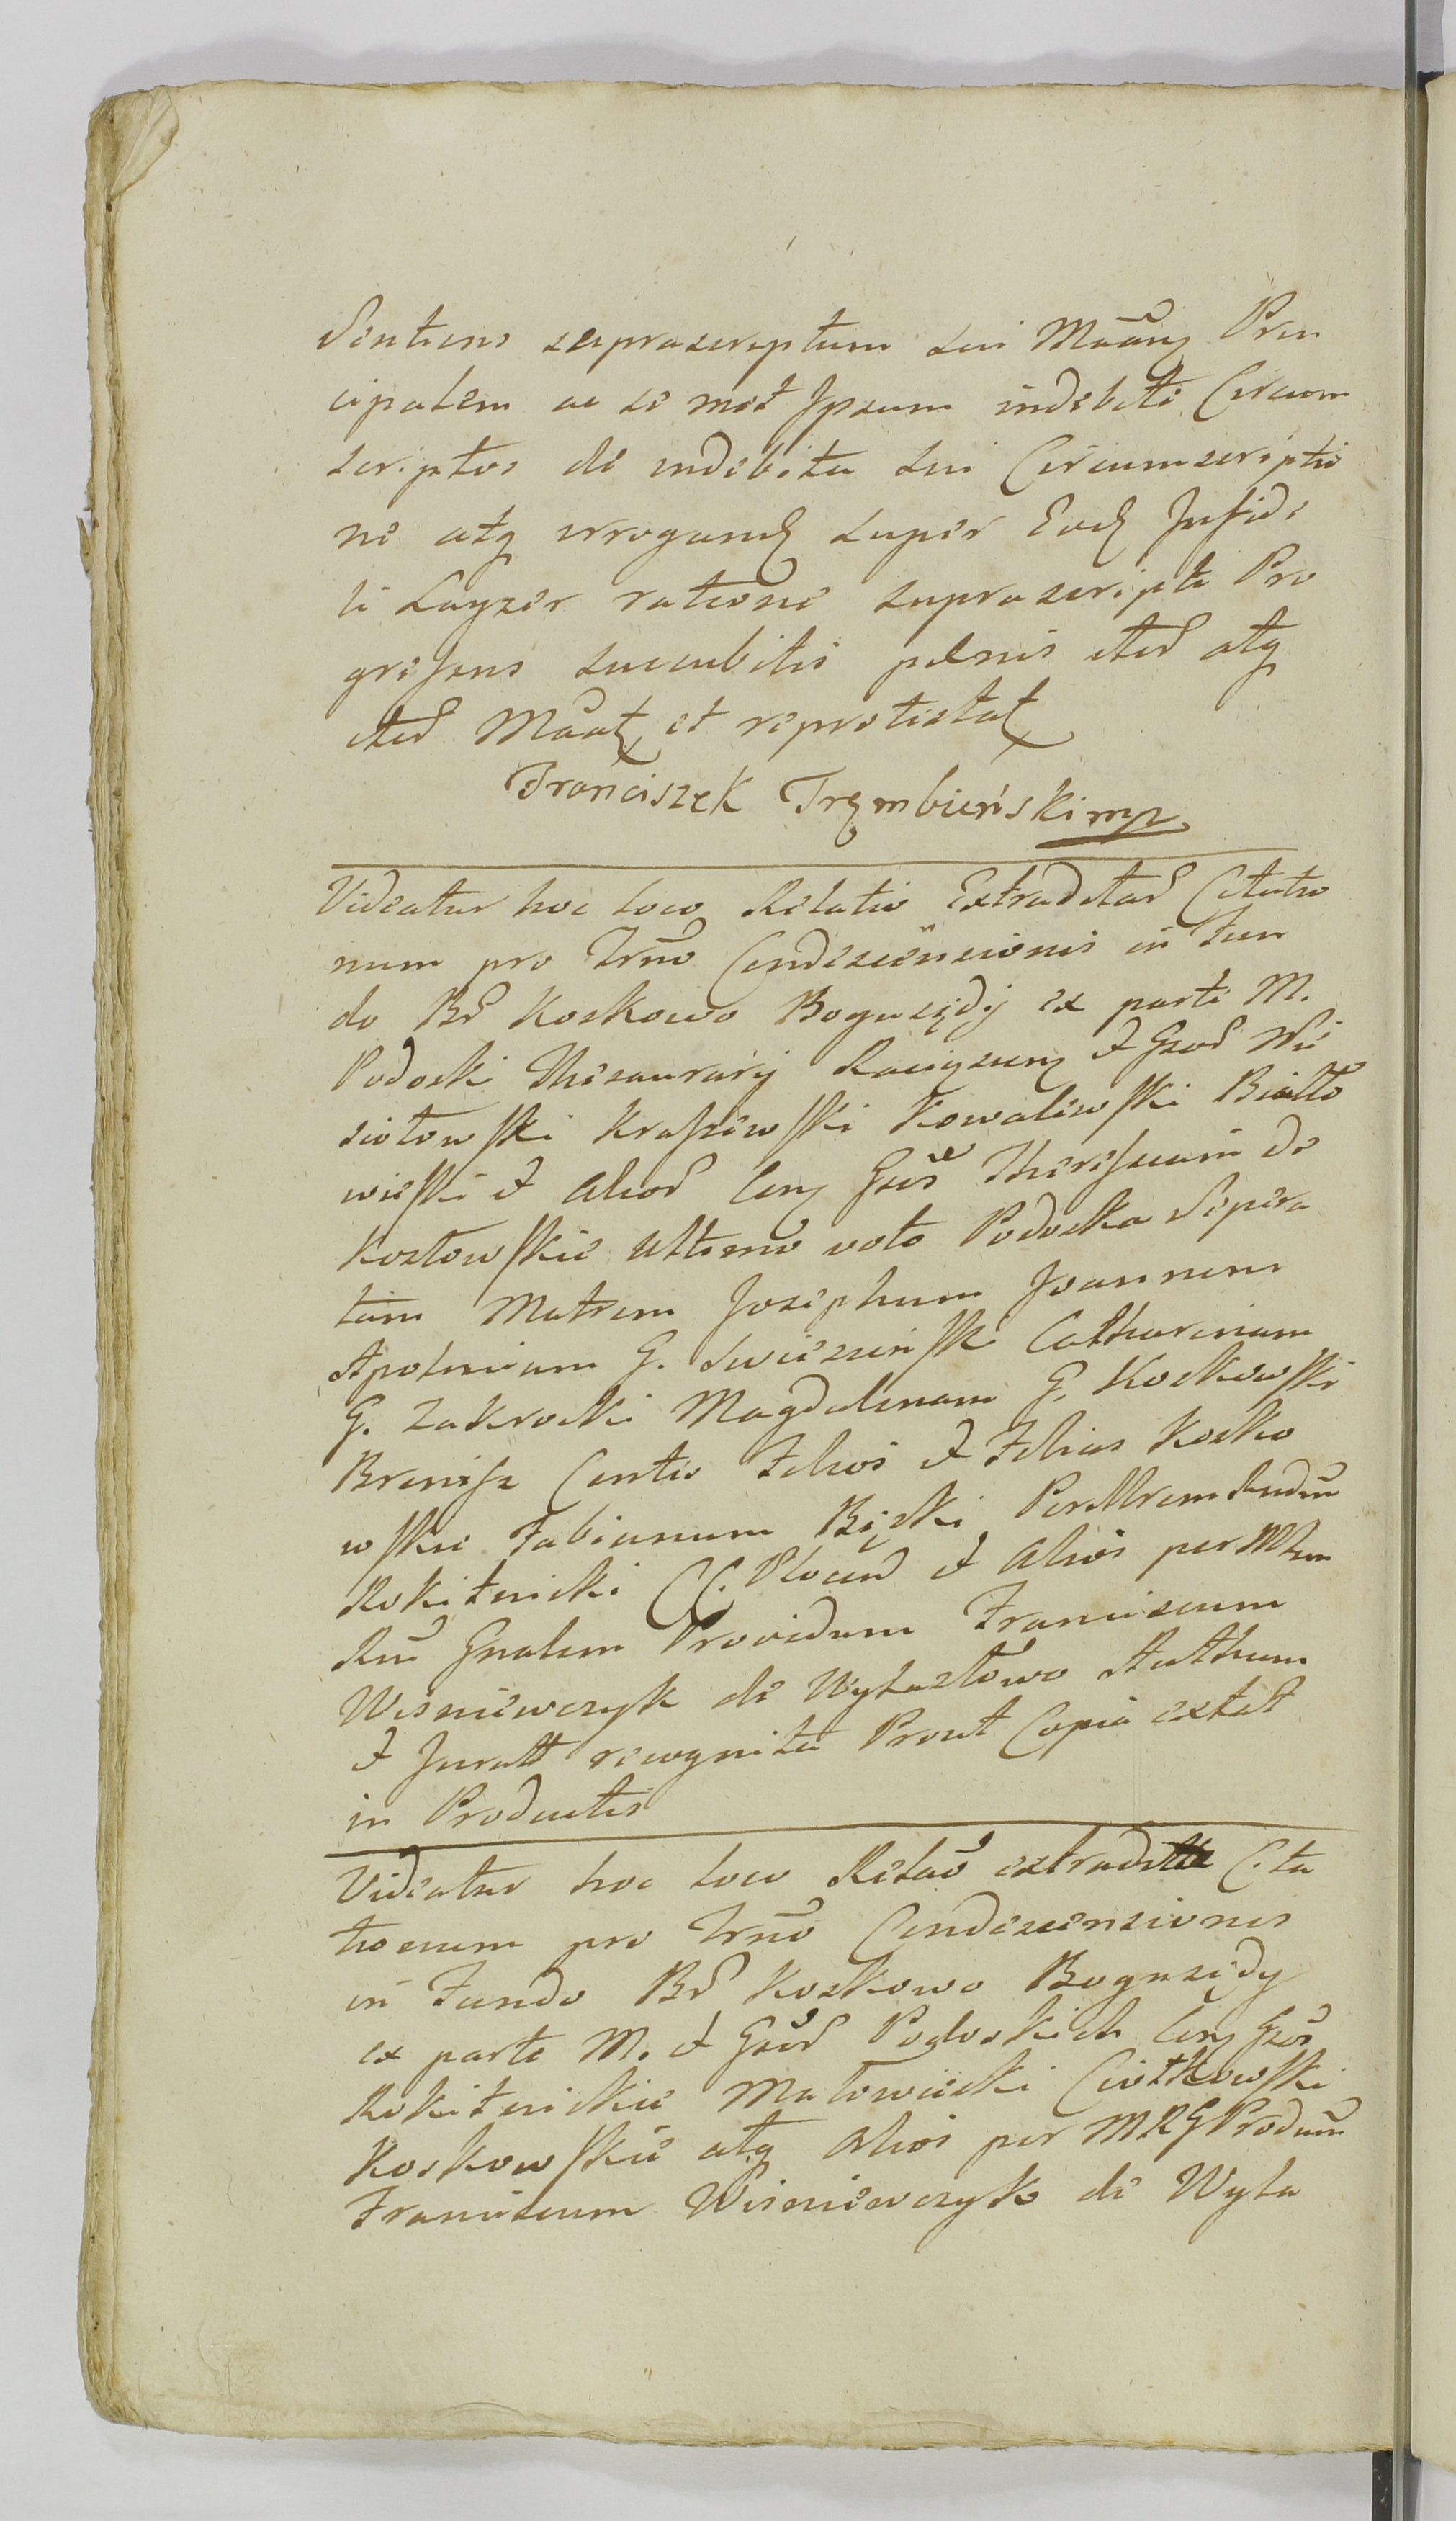 Sentiens supra scriptum sui Maăng Prin
cipalem ac se met Ipsum indebite Circum
scriptos de indebita sui Circumscriptio
ne atq irrogand super Eod Infide
li Layzer ratione suprascripti Pro
gressus succubitis pænis iterd atq
iterd Măat et reprotestat
Franciszek Trembieński mp
Videatur hoc loco Relatio Extraditar Citatio
num pro Trno Condescensionis in Fun
do Br Koskowo Boguszędy ex parte M.
Podoski Thesaurarij Raciązen et Gsor Wie
siołowski Kraszewski Kowalewski Białło
wieski et alior Cong Gsos Theressiam de
Kozłowskie ultimo voto Podoska Separa
tam Matrem Josephum Joannem
Apoloniam G. Swieszeńska Catharinam
G. Zakrocki Magdalenam G. Koskowski
Brenisz Contis Filios et Filias Kosko
wskie Fabianum Bięski Perillrem Ludum
Rokitnicki CC. Plocen et alios per Mtem
Rm Gnalem Providum Franciscum
Wisniewczyk de Wylazłowo Authum
et Juratt recognita Prout Copia extat
in Productis
Videatur hoc loco Relao extradittae Cita
tionum pro Trno Condescensionis
in Fundo Br Koskowo Boguszędy
ex parte M. et Gsor Podoskich Cong Gsos
Rokitnickie Małowieski Ciołkowski
Koskowskie atq alios per MRG Produm
Franciscum Wiszniewczyk de Wyla